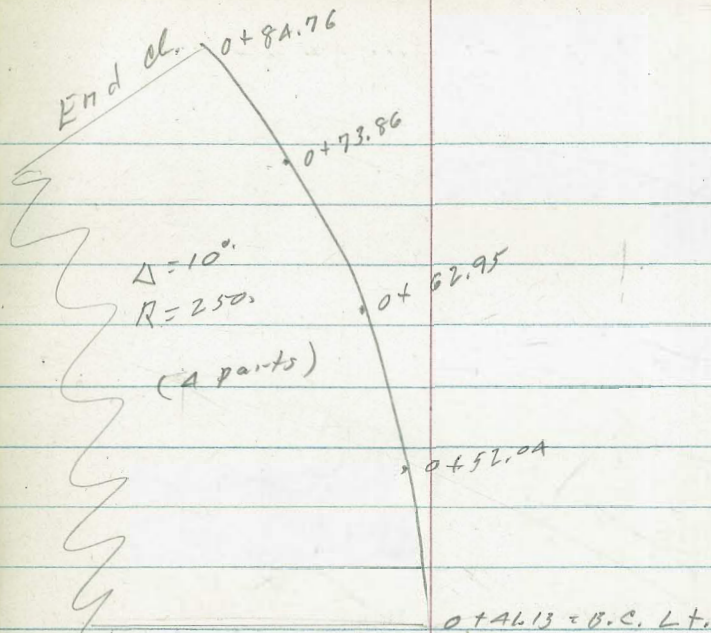 End cl. 0+84.76
0+73.86
Δ=10°.
R=250.
0+62.95
(4 parts)
0+52.04
0+41.13 = B.C. Lt.